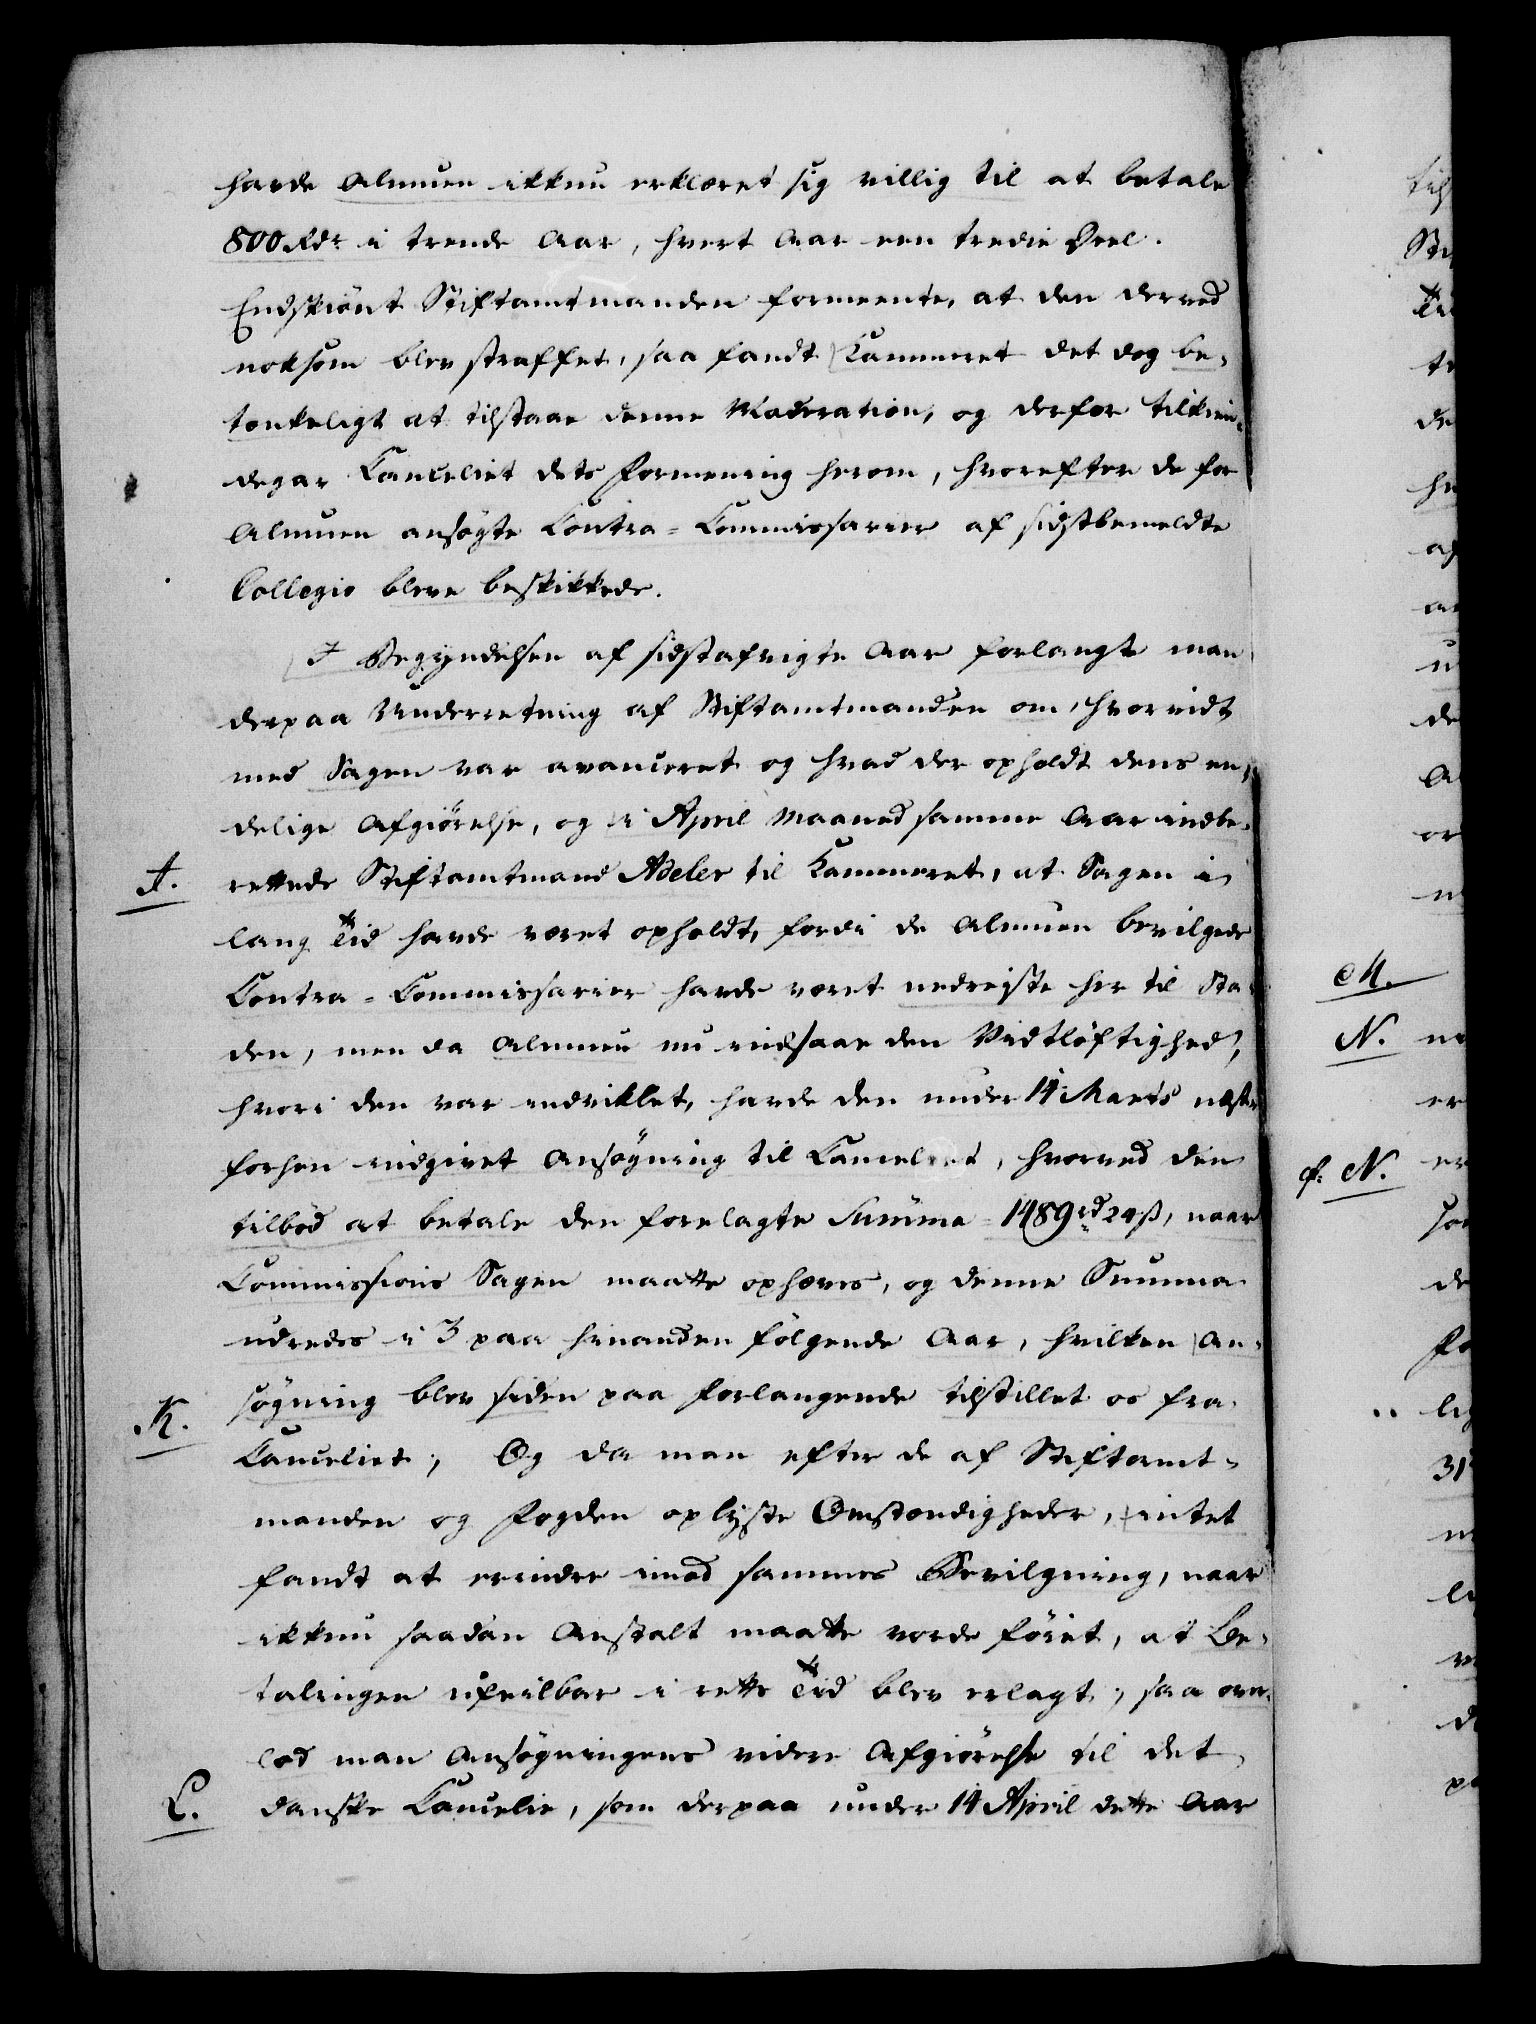 havde Almuen ikkun erklæret sig villig til at betale
800 Rdr i trende Aar, hvert Aar een tredie Deel.
Endskiönt Stiftamtmanden formeente, at den derved
noksom blev straffet, saa fandt Kammeret det dog be-
tænkeligt at tilstaae denne Moderation, og derfor tilkien-
degav Cancelliet dets Formening herom, hvorefter de for
Almuen ansögte Contra-Commissarier af sidstbemeldte
Collegio bleve beskikkede.
I Begyndelsen af sidstafvigte Aar forlangte man
derpaa Underretning af Stiftamtmanden om, hvorvidt
med Sagen var avanceret og hvad der opholdt dens en-
delige Afgiörelse, og i April Maaned samme Aar indbe-
J.
rettede Stiftamtmand Adeler til Kammeret, at Sagen i
lang Tid havde været opholdt, fordi de Almuen bevilgede
Contra-Commissarier havde været nedreiste her til Sta-
den, men da Almuen nu indsaae den Vidtlöftighed,
hvori den var indviklet, havde den under 14 Marts næst
forhen indgivet Ansögning til Cancelliet, hvorved den
tilböd at betale den forelagte Summa 1489 rd 24 ß, naar
Commissions Sagen maatte ophæves, og denne Summa
udredes i 3 paa hinanden fölgende Aar, hvilken An-
K.
sögning blev siden paa Forlangende tilstillet os fra
Cancelliet; Og da man efter de af Stiftamt-
manden og Fogden oplyste Omstændigheder, intet
fandt at erindre imod sammes Bevilgning, naar
ikkun saadan Anstalt maatte vorde föiet, at Be-
talingen ufeilbar i rette Tid blev erlagt; saa over-
lod man Ansögningens videre Afgiörelse til det
L.
danske Cancelie, som derpaa under 14 April dette Aar
M.
N.
f. N.